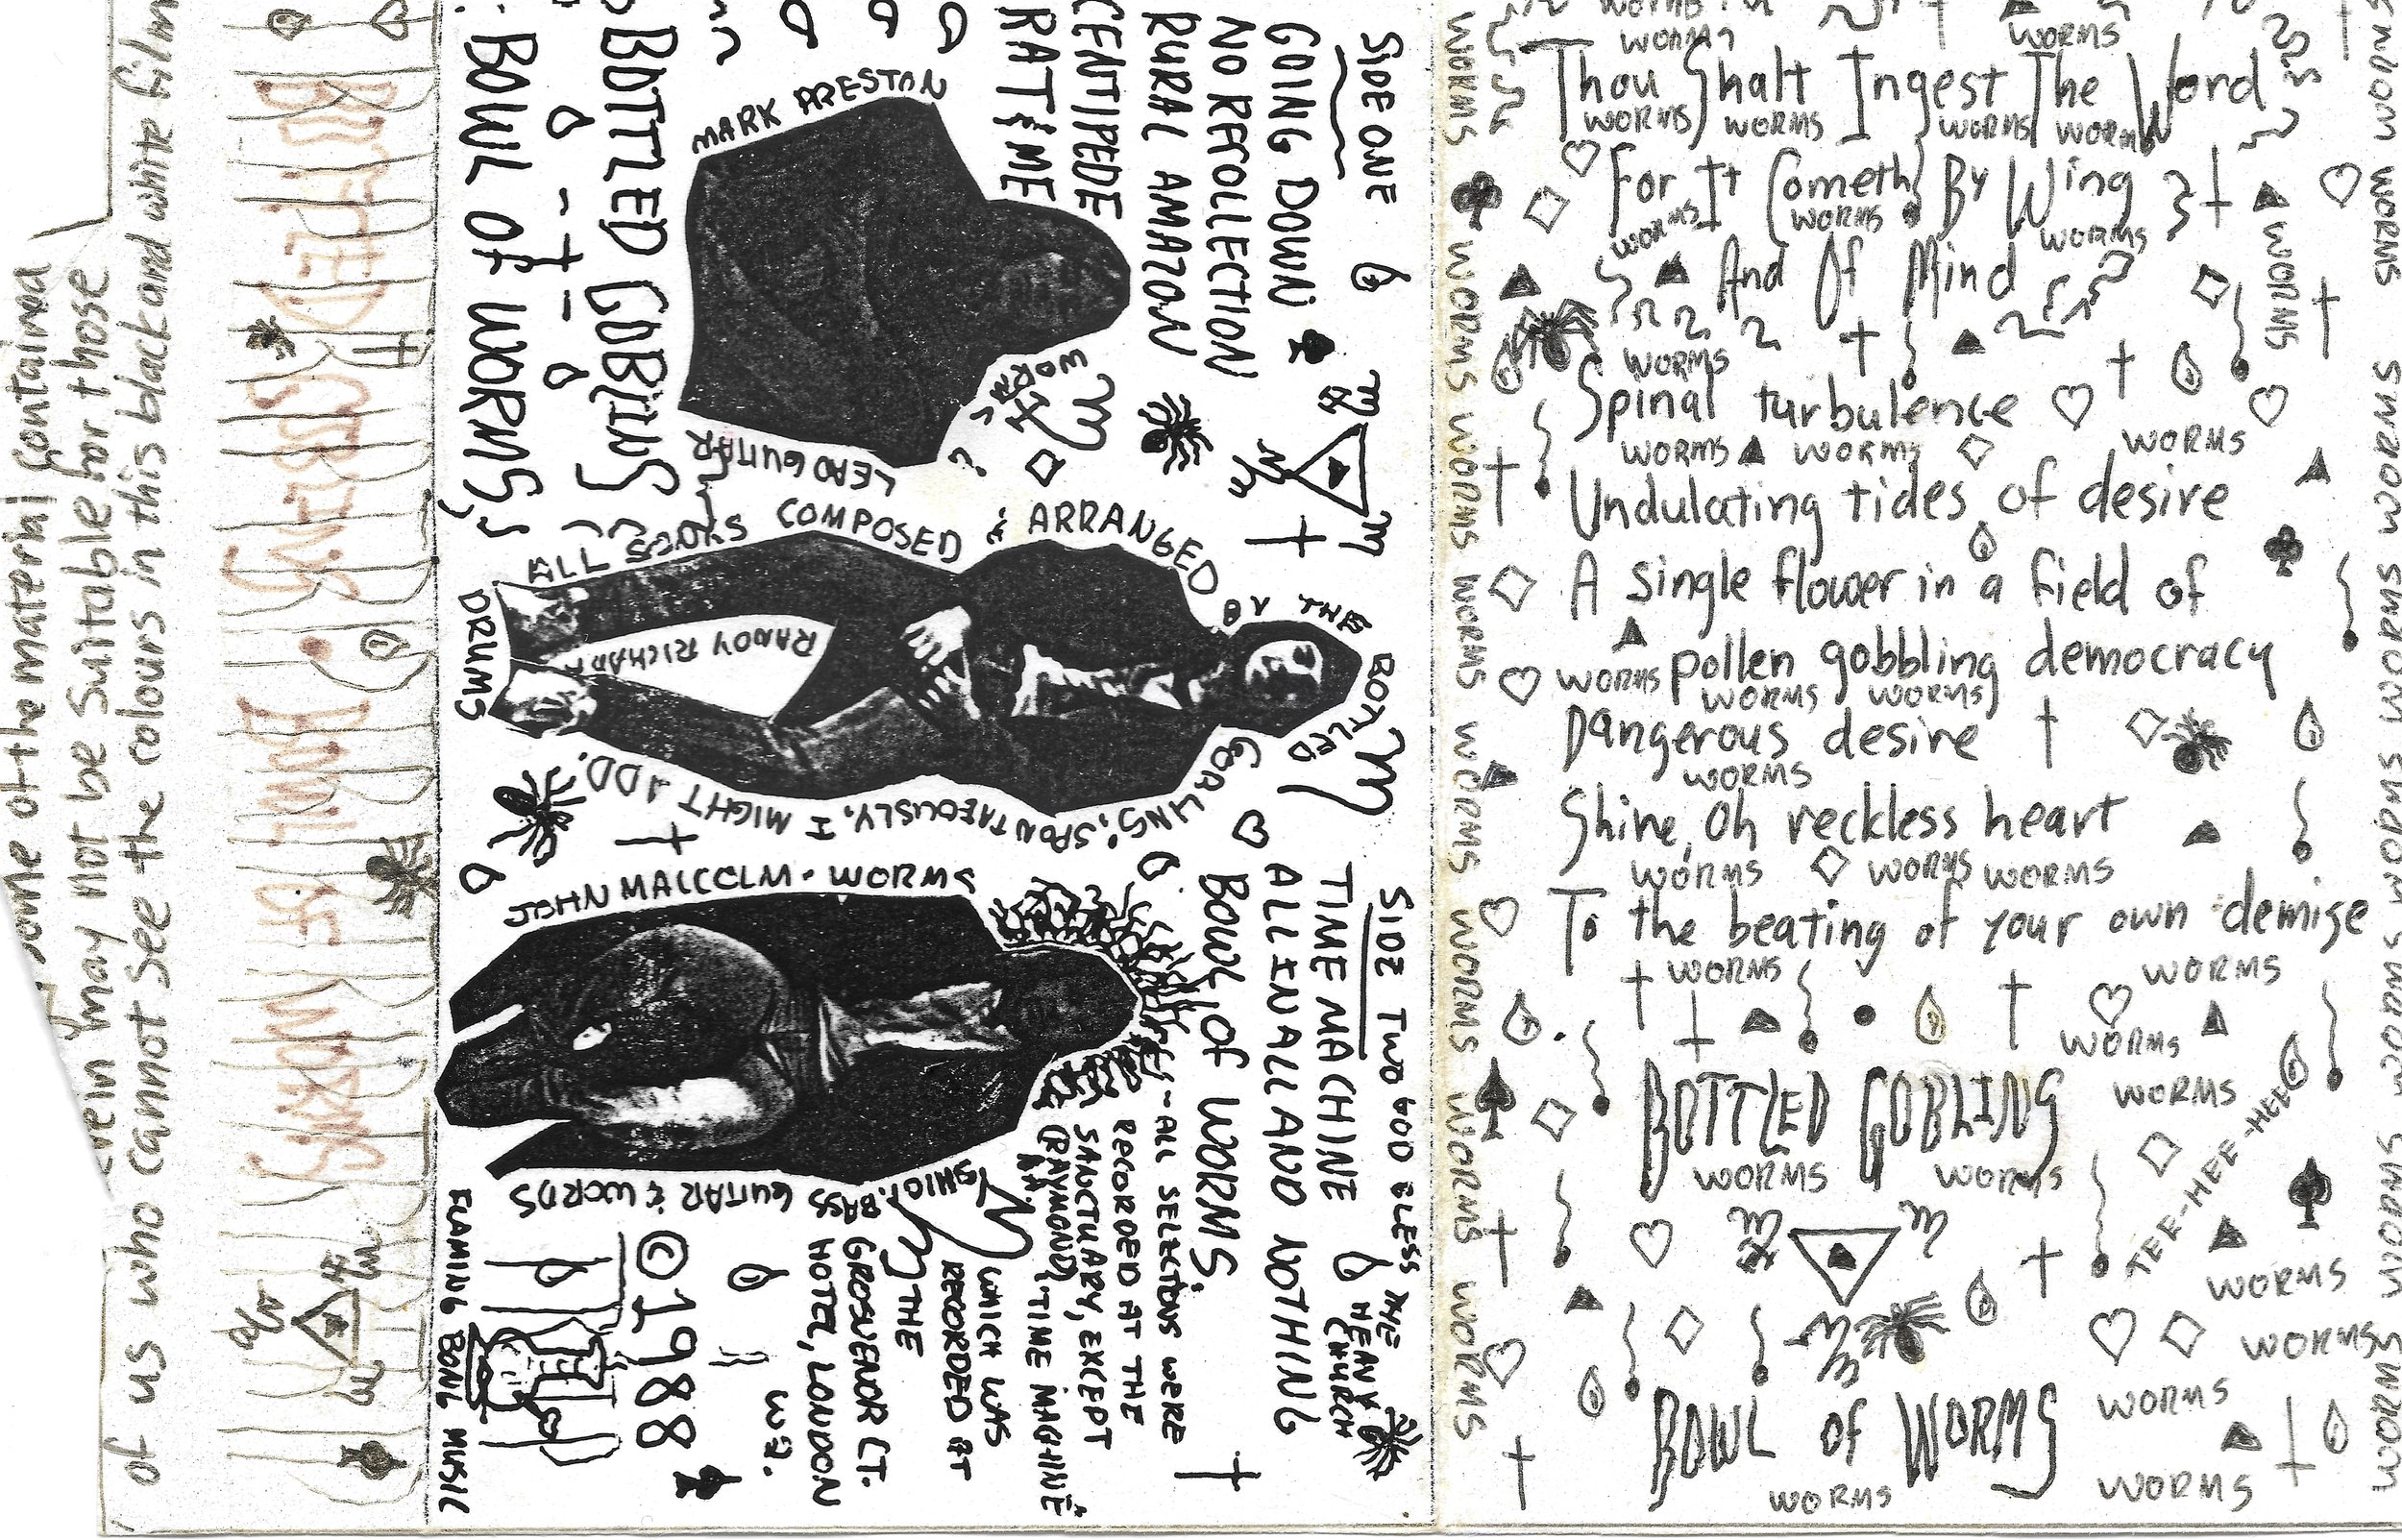 Some of the material Contained
may not be Suitable for those
of us who cannot See the colours in this black and white film
BOTTLED GOBLINS. BOWL OF WORMS
BOTTLED GOBLINS
BOWL OF WORMS
SIDE ONE
GOING DOWN
NO RECOLLECTION
RURAL AMAZON
CENTIPEDE
RAT & ME
MARK PRESTON
LEAD GUITAR
WORMS
ALL SONGS COMPOSED & ARRANGED BY THE BOTTLED GOBLINS, SPONTANEOUSLY, I MIGHT ADD.
DRUMS
RANDY RICHARD
JOHN MALCOLM - WORMS
BASS GUITAR & WORDS
SIDE TWO
TIME MACHINE
ALL IN ALL AND NOTHING
BOWL OF WORMS
GOD BLESS THE
CHURCH
~ ALL SELECTIONS WERE
RECORDED AT THE
SANCTUARY, EXCEPT
(RAYMOND) TIME MACHINE
WHICH WAS
RECORDED AT
THE
GROSVENOR CT.
HOTEL, LONDON
W2.
©1988
FLAMING BONG MUSIC
WORMS WORMS
WORMS WORMS
Thou Shalt Ingest The Word
WORMS WORMS WORMS WORMS
For It Cometh By Wing
WORMS WORMS WORMS
And Of Mind
WORMS
WORMS
Spinal turbulence
WORMS WORMS WORMS
Undulating tides of desire
A single flower in a field of
WORMS pollen gobbling democracy
WORMS WORMS
Dangerous desire
WORMS
Shine, Oh reckless heart
WORMS WORMS WORMS
To the beating of your own demise
WORMS WORMS
WORMS
BOTTLED GOBLINS
WORMS
WORMS WORMS
TEE-HEE-HEE
WORMS
WORMS
BOWL of WORMS
WORMS
WORMS WORMS
WORMS WORMS WORMS WORMS WORMS WORMS WORMS WORMS WORMS WORMS
WORMS WORMS WORMS WORMS WORMS WORMS WORMS WORMS